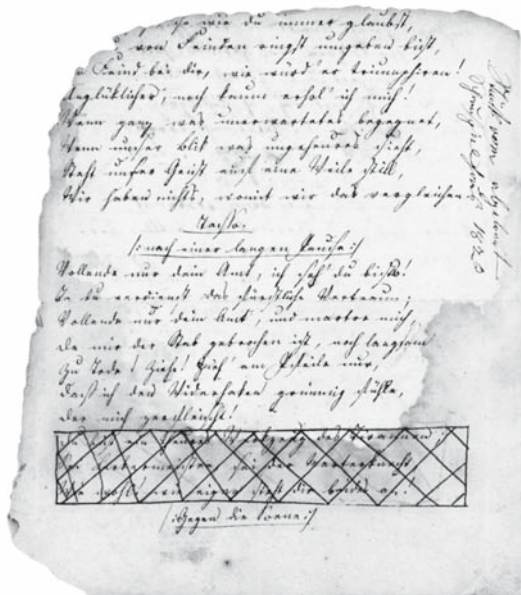 wie du immer glaubst,
von Feinden rings umgeben bist,
Feind bei dir, wie würd' er triumphiren!
Unglüklicher, noch kaum erhol' ich mich!
Wenn ganz was unerwartetes begegnet,
Wenn unser Blik was ungeheures sieht,
Steht unser Geist auf eine Weile still,
Wir haben nichts, womit wir das vergleichen.
Tasso.
/: nach einer langen Pause :/
Vollende nur dein Amt, ich seh' du bists!
Ja du verdienst das fürstliche Vertraun;
Vollende nur dein Amt, und martre mich,
Da mir der Stab gebrochen ist, noch langsam
Zu Tode! Ziehe! Zieh' am Pfeile nur,
Dass ich den Widerhaken grimmig fühle,
Der mich zerfleischt!
Du bist ein theures Werkzeug des Tirannen;
Sei Kerkermeister, sei der Marterknecht,
Wie wohl! wie eigen steht dir beides an!
/: Gegen die Scene :/
1820